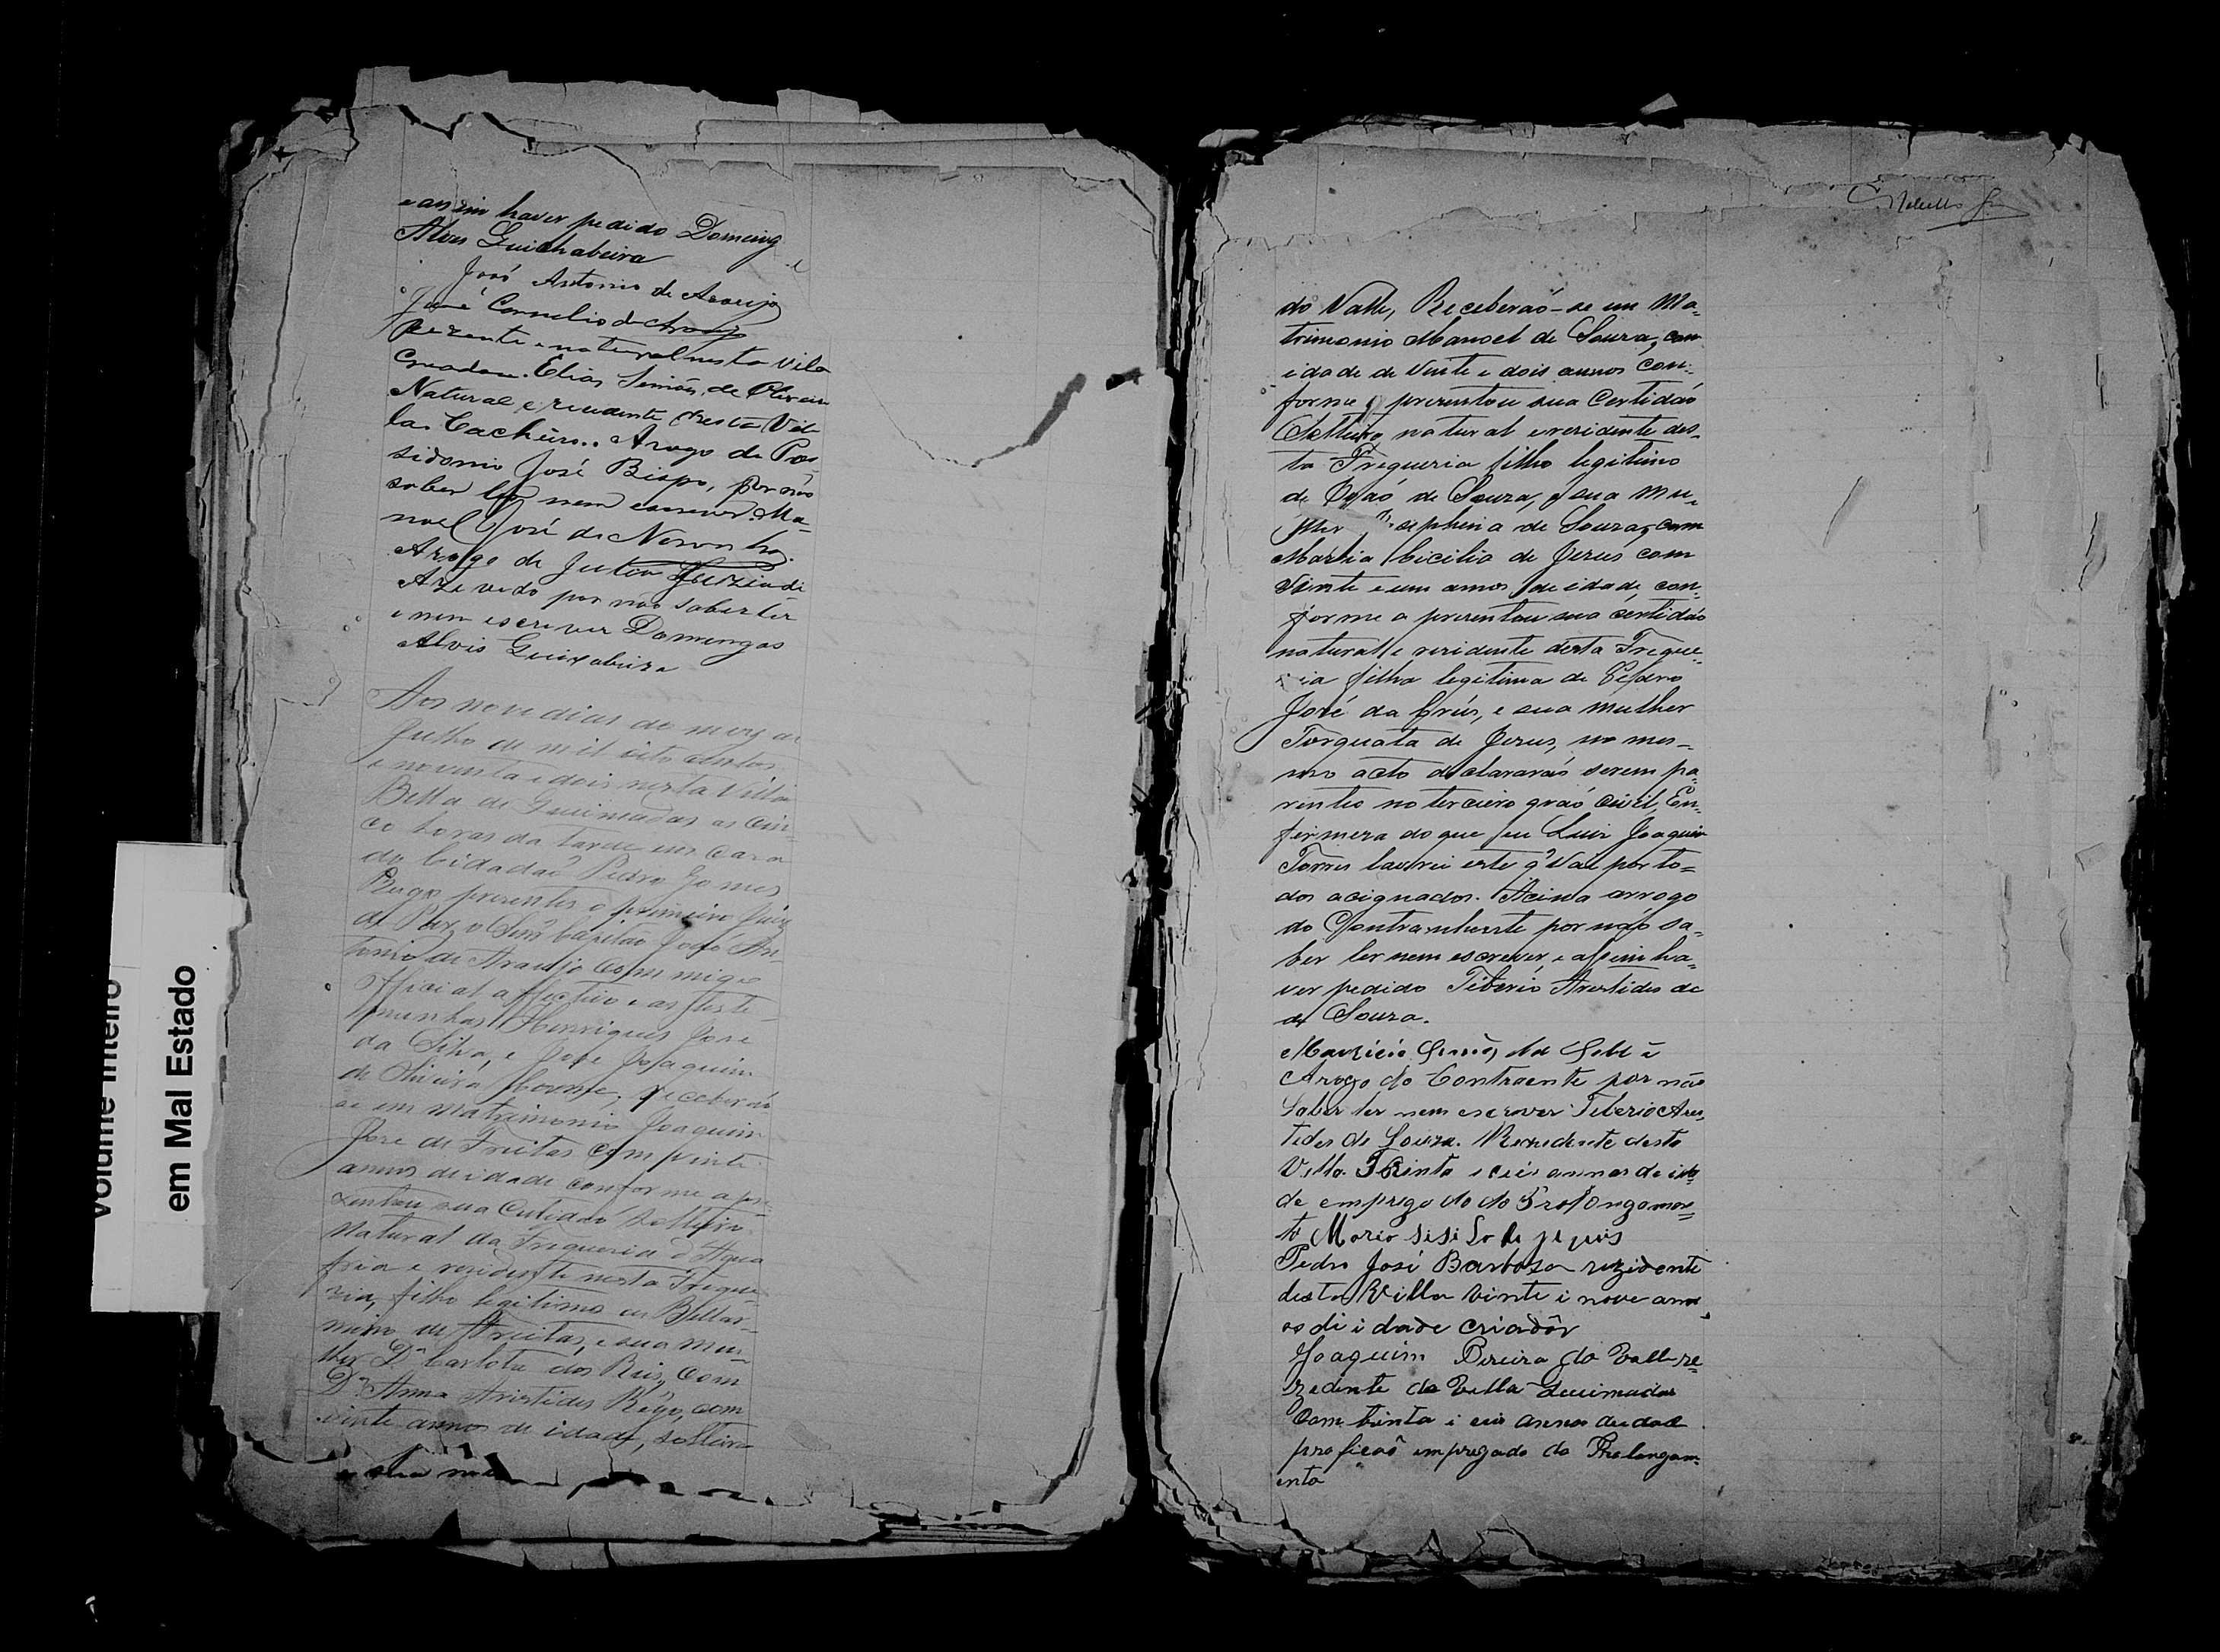 e assim haver pedido Doming
Alves Guichabeira
José Antonio de Araujo
José Cornelio de Araujo
rezente e natural nesta Vila
Creador. Elias Simão de Oliveira
Natural e rezidente desta Vil
la. Arogo de Pos
sidonio José Bispo, por não
saber ler nem escrever. Ma-
noel José de Noronha
Arogo de Julia
Azevedo por não saber ler
e nem escrever Domingos
Alvis Guixabeira
Aos nove dias do mez de
Julho de mil oito centos
e noventa e dois nesta Villa
Bella de Queimadas as cin-
co horas da tarde em casa
do Cidadão Pedro Gomes
Rego prezentes o primeiro Juiz
de Paz o Senr Capitão José An-
tonio de Araujo commigo
Official effectivo e as teste-
munhas Henriques José
da Silva, e José Joaquim
de Oliveira receberão
se em matrimonio Joaquim
José de Freitas com vinte
annos de idade conforme apre
zentou sua Certidaó solteiro
Natural da Fregueria d'Agua
fria e rezidente nesta Fregue-
zia, filho legitimo de Bellar-
mino de Freitas, e sua mu-
lher Dª Carlota dos Reis, com
Dª Anna Aristides Rêgo, com
vinte annos de idade, solteira
Rebello Jr
do Valle, Receberaó-se em Ma-
trimonio Manoel de Souza, com
idade de Vinte e dois annos con-
forme aprezentou sua Certidaó
Solteiro natural e rezidente des-
ta Fregueria filho legitimo
de Joaó de Souza, e sua mu-
lher Josephina de Souza, com
Maria Cicilia de Jezus com
Vinte e um annos de idade con-
forme a prezentou sua certidaó
natural e rezidente desta Fregue-
zia filha legitima de Pedro
José da Crús, e sua mulher
Torquata de Jezus, no mes-
mo acto declararaó serem pa-
rentes no terceiro graó Civil, En-
firmeza do que eu Luiz Joaquim
Torres lavrei este q' Vae por to-
dos acignados. Acina arrogo
do Contrahente por não sa-
ber ler nem escrever, e assim ha-
ver pedido Tiberio Arestides de
de Souza.
Arogo do Contraente por não
Saber ler nem escrever Tiberio Ares
tides de Souza. Rezedente desta
Villa Trinta e ceis annos de ida
de empregado do Prolongamen=
to Maria
Pedro José Barboza rezidente
desta Villa Vinte i nove ann
os di idade criadôr
Joaquim Pereira do Valle re=
zedente da Villa Queimadas
Com trinta i ceis annos deidade
proficaõ empregado do Prolongam=
ento
Volume Inteiro
em Mal Estado